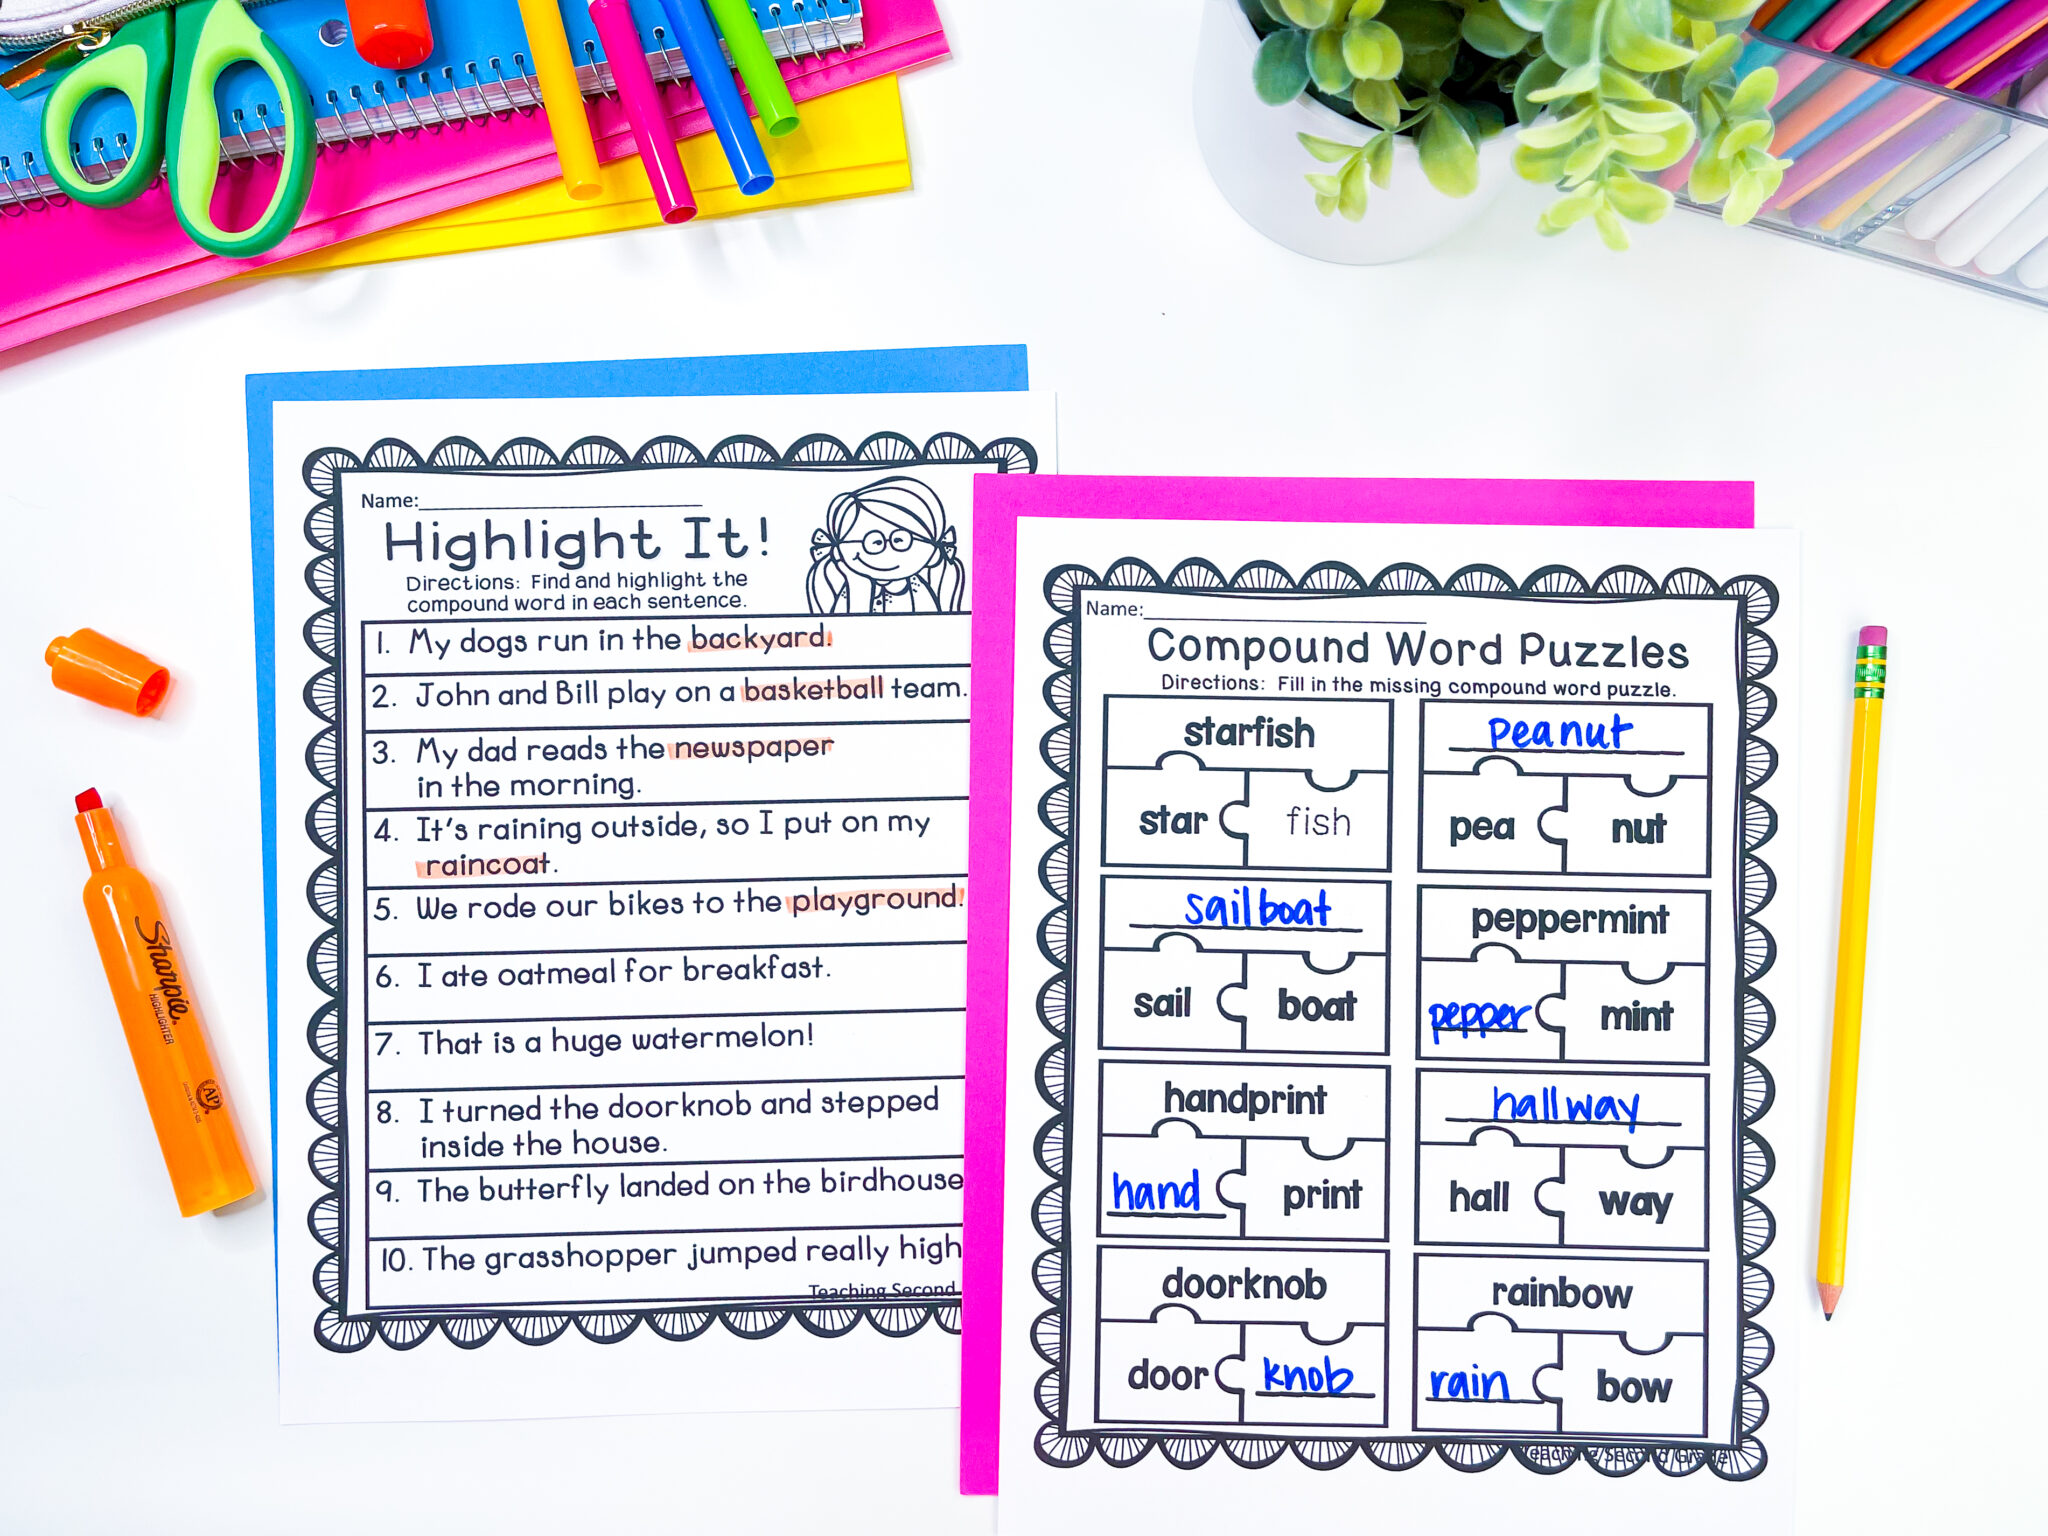 Name:
Highlight It!
Directions: Find and highlight the
compound word in each sentence.
1. My dogs run in the backyard.
2. John and Bill play on a basketball team.
3. My dad reads the newspaper
in the morning.
4. It's raining outside, so I put on my
raincoat.
5. We rode our bikes to the playground.
6. I ate oatmeal for breakfast.
7. That is a huge watermelon!
8. I turned the doorknob and stepped
inside the house.
9. The butterfly landed on the birdhouse
10. The grasshopper jumped really high
Teaching Second
Name:
Compound Word Puzzles
Directions: Fill in the missing compound word puzzle.
starfish
star fish
peanut
pea nut
sailboat
sail boat
peppermint
pepper mint
handprint
hand print
hallway
hall way
doorknob
door knob
rainbow
rain bow
Teaching Second Grade
Sharpie.
HIGHLIGHTER
AP